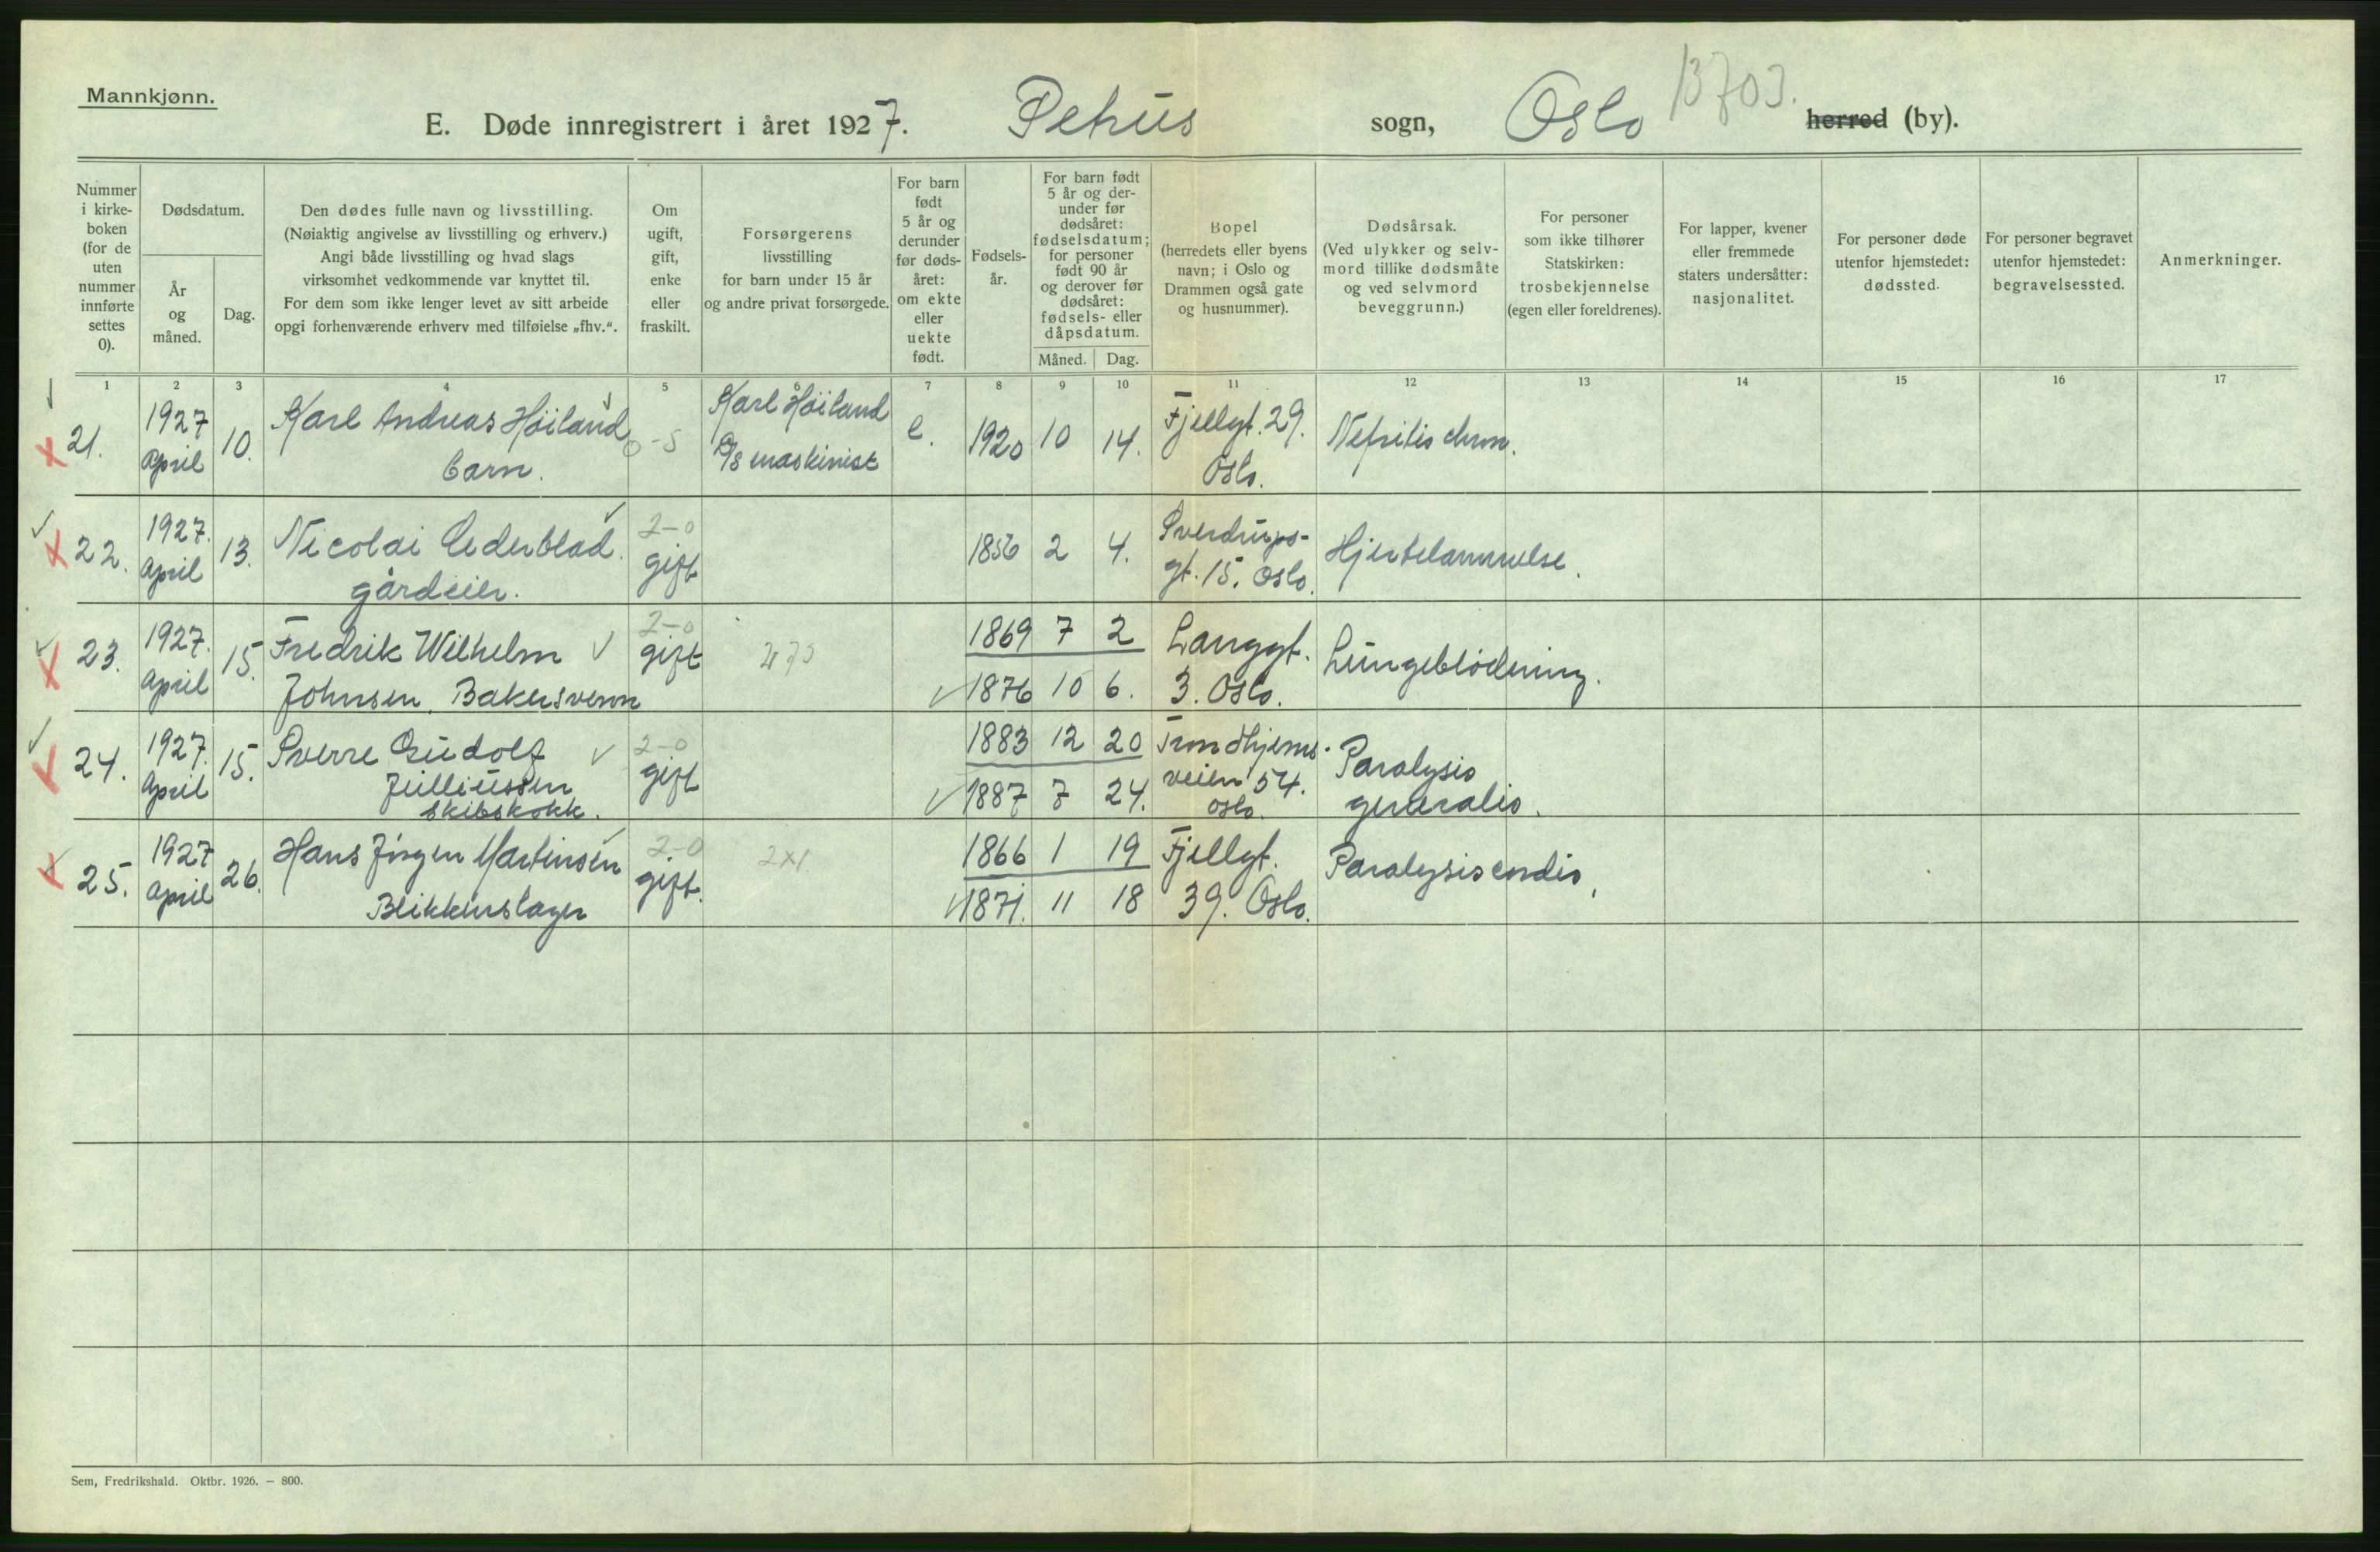 Mannkjønn.
E. Døde innregistrert i året 1927. Petrus sogn, Oslo herred (by).
13703.
Nummer i kirke-boken (for de uten nummer innførte settes 0).
Dødsdatum.
År og måned.
Dag.
Den dødes fulle navn og livsstilling.
(Nøiaktig angivelse av livsstilling og erhverv.)
Angi både livsstilling og hvad slags
virksomhet vedkommende var knyttet til.
For dem som ikke lenger levet av sitt arbeide
opgi forhenværende erhverv med tilføielse „fhv.".
Om ugift, gift, enke eller fraskilt.
Forsørgerens
livsstilling
for barn under 15 år
og andre privat forsørgede.
For barn født 5 år og derunder før døds-året: om ekte eller uekte født.
Fødsels-år.
For barn født 5 år og der-under før dødsåret: fødselsdatum; for personer født 90 år og derover før dødsåret: fødsels- eller dåpsdatum.
Måned. Dag.
Bopel
(herredets eller byens
navn; i Oslo og
Drammen også gate
og husnummer).
Dødsårsak.
(Ved ulykker og selv-
mord tillike dødsmåte
og ved selvmord
beveggrunn.)
For personer
som ikke tilhører
Statskirken:
trosbekjennelse
(egen eller foreldrenes).
For lapper, kvener
eller fremmede
staters undersåtter:
nasjonalitet.
For personer døde
utenfor hjemstedet:
dødssted.
For personer begravet
utenfor hjemstedet:
begravelsessted.
Anmerkninger.
1 2 3 4 5 6 7 8 9 10 11 12 13 14 15 16 17
21. 1927 April 10. Karl Andreas Höiland barn. 0-5 Karl Höiland D/S maskinist e. 1920 10 14. Fjellgt. 29. Oslo. Nefritis chron.
22. 1927. April 13. Nicolai Cederblad. gårdeier. 2-0 gift 1856 2 4. Sverdrups-gt. 15. Oslo. Hjertelammelse.
23. 1927. April 15. Fredrik Wilhelm Johnsen. Bakersvenn 2-0 gift 1869 7 2 1876 10 6. Langgt. 3. Oslo. Lungeblödning.
24. 1927. April 15. Sverre Gudolf Julliussen skibskokk. 2-0 gift 1883 12 20 1887 7 24. Trondhjems-veien 54. Oslo. Paralysis generalis.
25. 1927 April 26. Hans Jörgen Martinsen Blikkenslager 2-0 gift. 2x1 1866 1 19 1871. 11 18 Fjellgt. 39. Oslo. Paralysis cordis.
Sem, Fredrikshald. Oktbr. 1926. — 800.